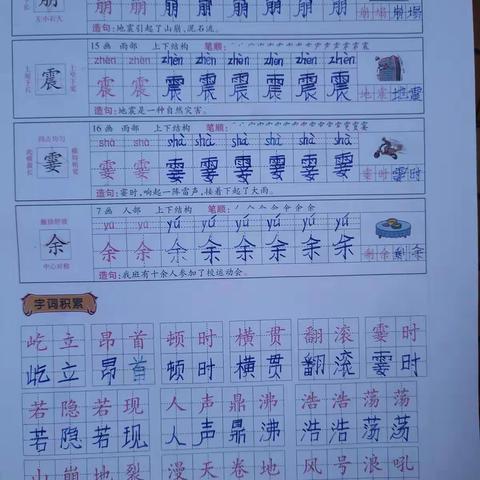 崩 崩 崩 崩 崩 崩 崩 崩 崩 塌 崩塌
左小右大
造句：地震引起了山崩、泥石流。
15画 雨部 上下结构 笔顺：
zhèn zhèn zhèn zhèn zhèn zhèn zhèn
震 震 震 震 震 震 震 震 地震 地震
造句：地震是一种自然灾害。
四点均匀
16画 雨部 上下结构 笔顺：
shà shà shà shà shà shà shà
霎 霎 霎 霎 霎 霎 霎 霎 霎时 霎时
造句：霎时，响起一阵雷声，接着下起了大雨。
撇捺舒展
7画 人部 上下结构 笔顺：
yú yú yú yú yú yú yú
余 余 余 余 余 余 余 余 剩余 剩余
中心对称
造句：我班有十余人参加了校运动会。
字词积累
屹立 昂首 顿时 横贯 翻滚 霎时
屹立 昂首 顿时 横贯 翻滚 霎时
若隐若现 人声鼎沸 浩浩荡荡
若隐若现 人声鼎沸 浩浩荡荡
山崩地裂 漫天卷地 风号浪吼